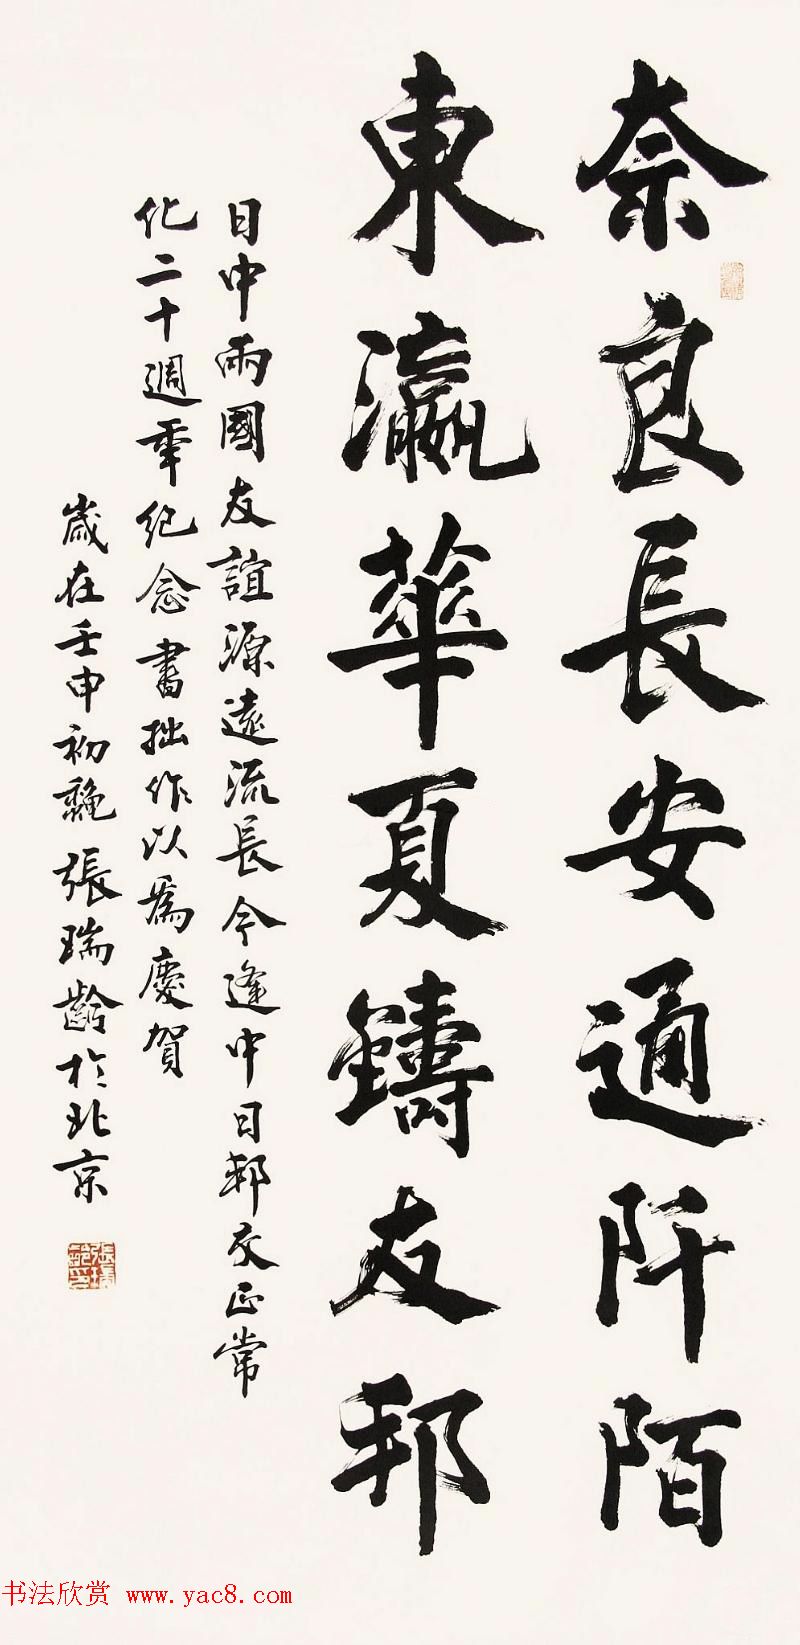 奈良長安通阡陌
東瀛華夏鑄友邦
日中兩國友誼源遠流長今逢中日邦交正常
化二十週年紀念書拙作以為慶賀
歲在壬申初龝張瑞齡於北京
书法欣赏 www.yac8.com